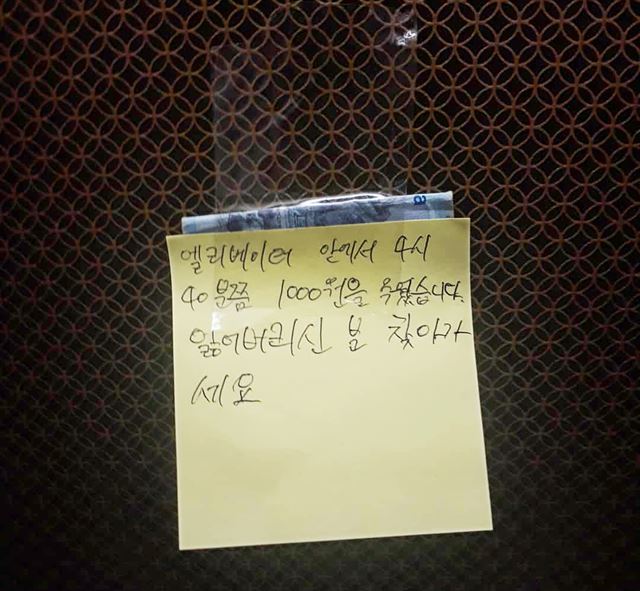 엘리베이어 앞에서 4시
40분쯤 1000원을 주웠습니다.
잃어버리신 분 찾아가
세요